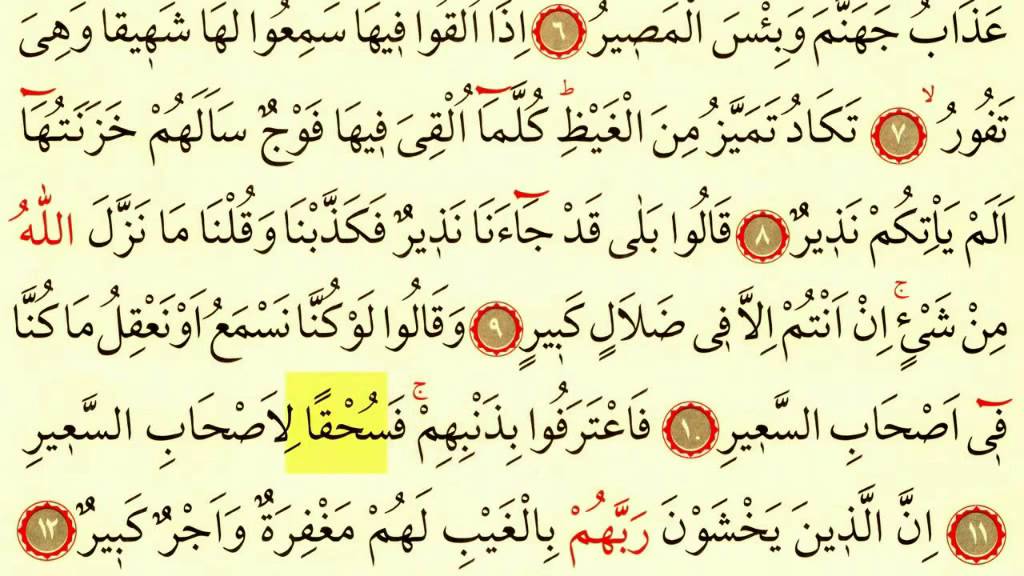 عَذَابُ جَهَنَّمَ وَبِئْسَ الْمَصٖيرُ ﴿٦﴾ اِذَٓا اُلْقُوا فٖيهَا سَمِعُوا لَهَا شَهٖيقًا وَهِىَ
تَفُورُۙ ﴿٧﴾ تَكَادُ تَمَيَّزُ مِنَ الْغَيْظِؕ كُلَّمَٓا اُلْقِىَ فٖيهَا فَوْجٌ سَاَلَهُمْ خَزَنَتُهَٓا
اَلَمْ يَاْتِكُمْ نَذٖيرٌ ﴿٨﴾ قَالُوا بَلٰى قَدْ جَٓاءَنَا نَذٖيرٌ فَكَذَّبْنَا وَقُلْنَا مَا نَزَّلَ اللّٰهُ
مِنْ شَىْءٍۚ اِنْ اَنْتُمْ اِلَّا فٖى ضَلَالٍ كَبٖيرٍ ﴿٩﴾ وَقَالُوا لَوْ كُنَّا نَسْمَعُ اَوْ نَعْقِلُ مَا كُنَّا
فٖٓى اَصْحَابِ السَّعٖيرِ ﴿١٠﴾ فَاعْتَرَفُوا بِذَنْبِهِمْۚ فَسُحْقًا لِاَصْحَابِ السَّعٖيرِ
﴿١١﴾ اِنَّ الَّذٖينَ يَخْشَوْنَ رَبَّهُمْ بِالْغَيْبِ لَهُمْ مَغْفِرَةٌ وَاَجْرٌ كَبٖيرٌ ﴿١٢﴾